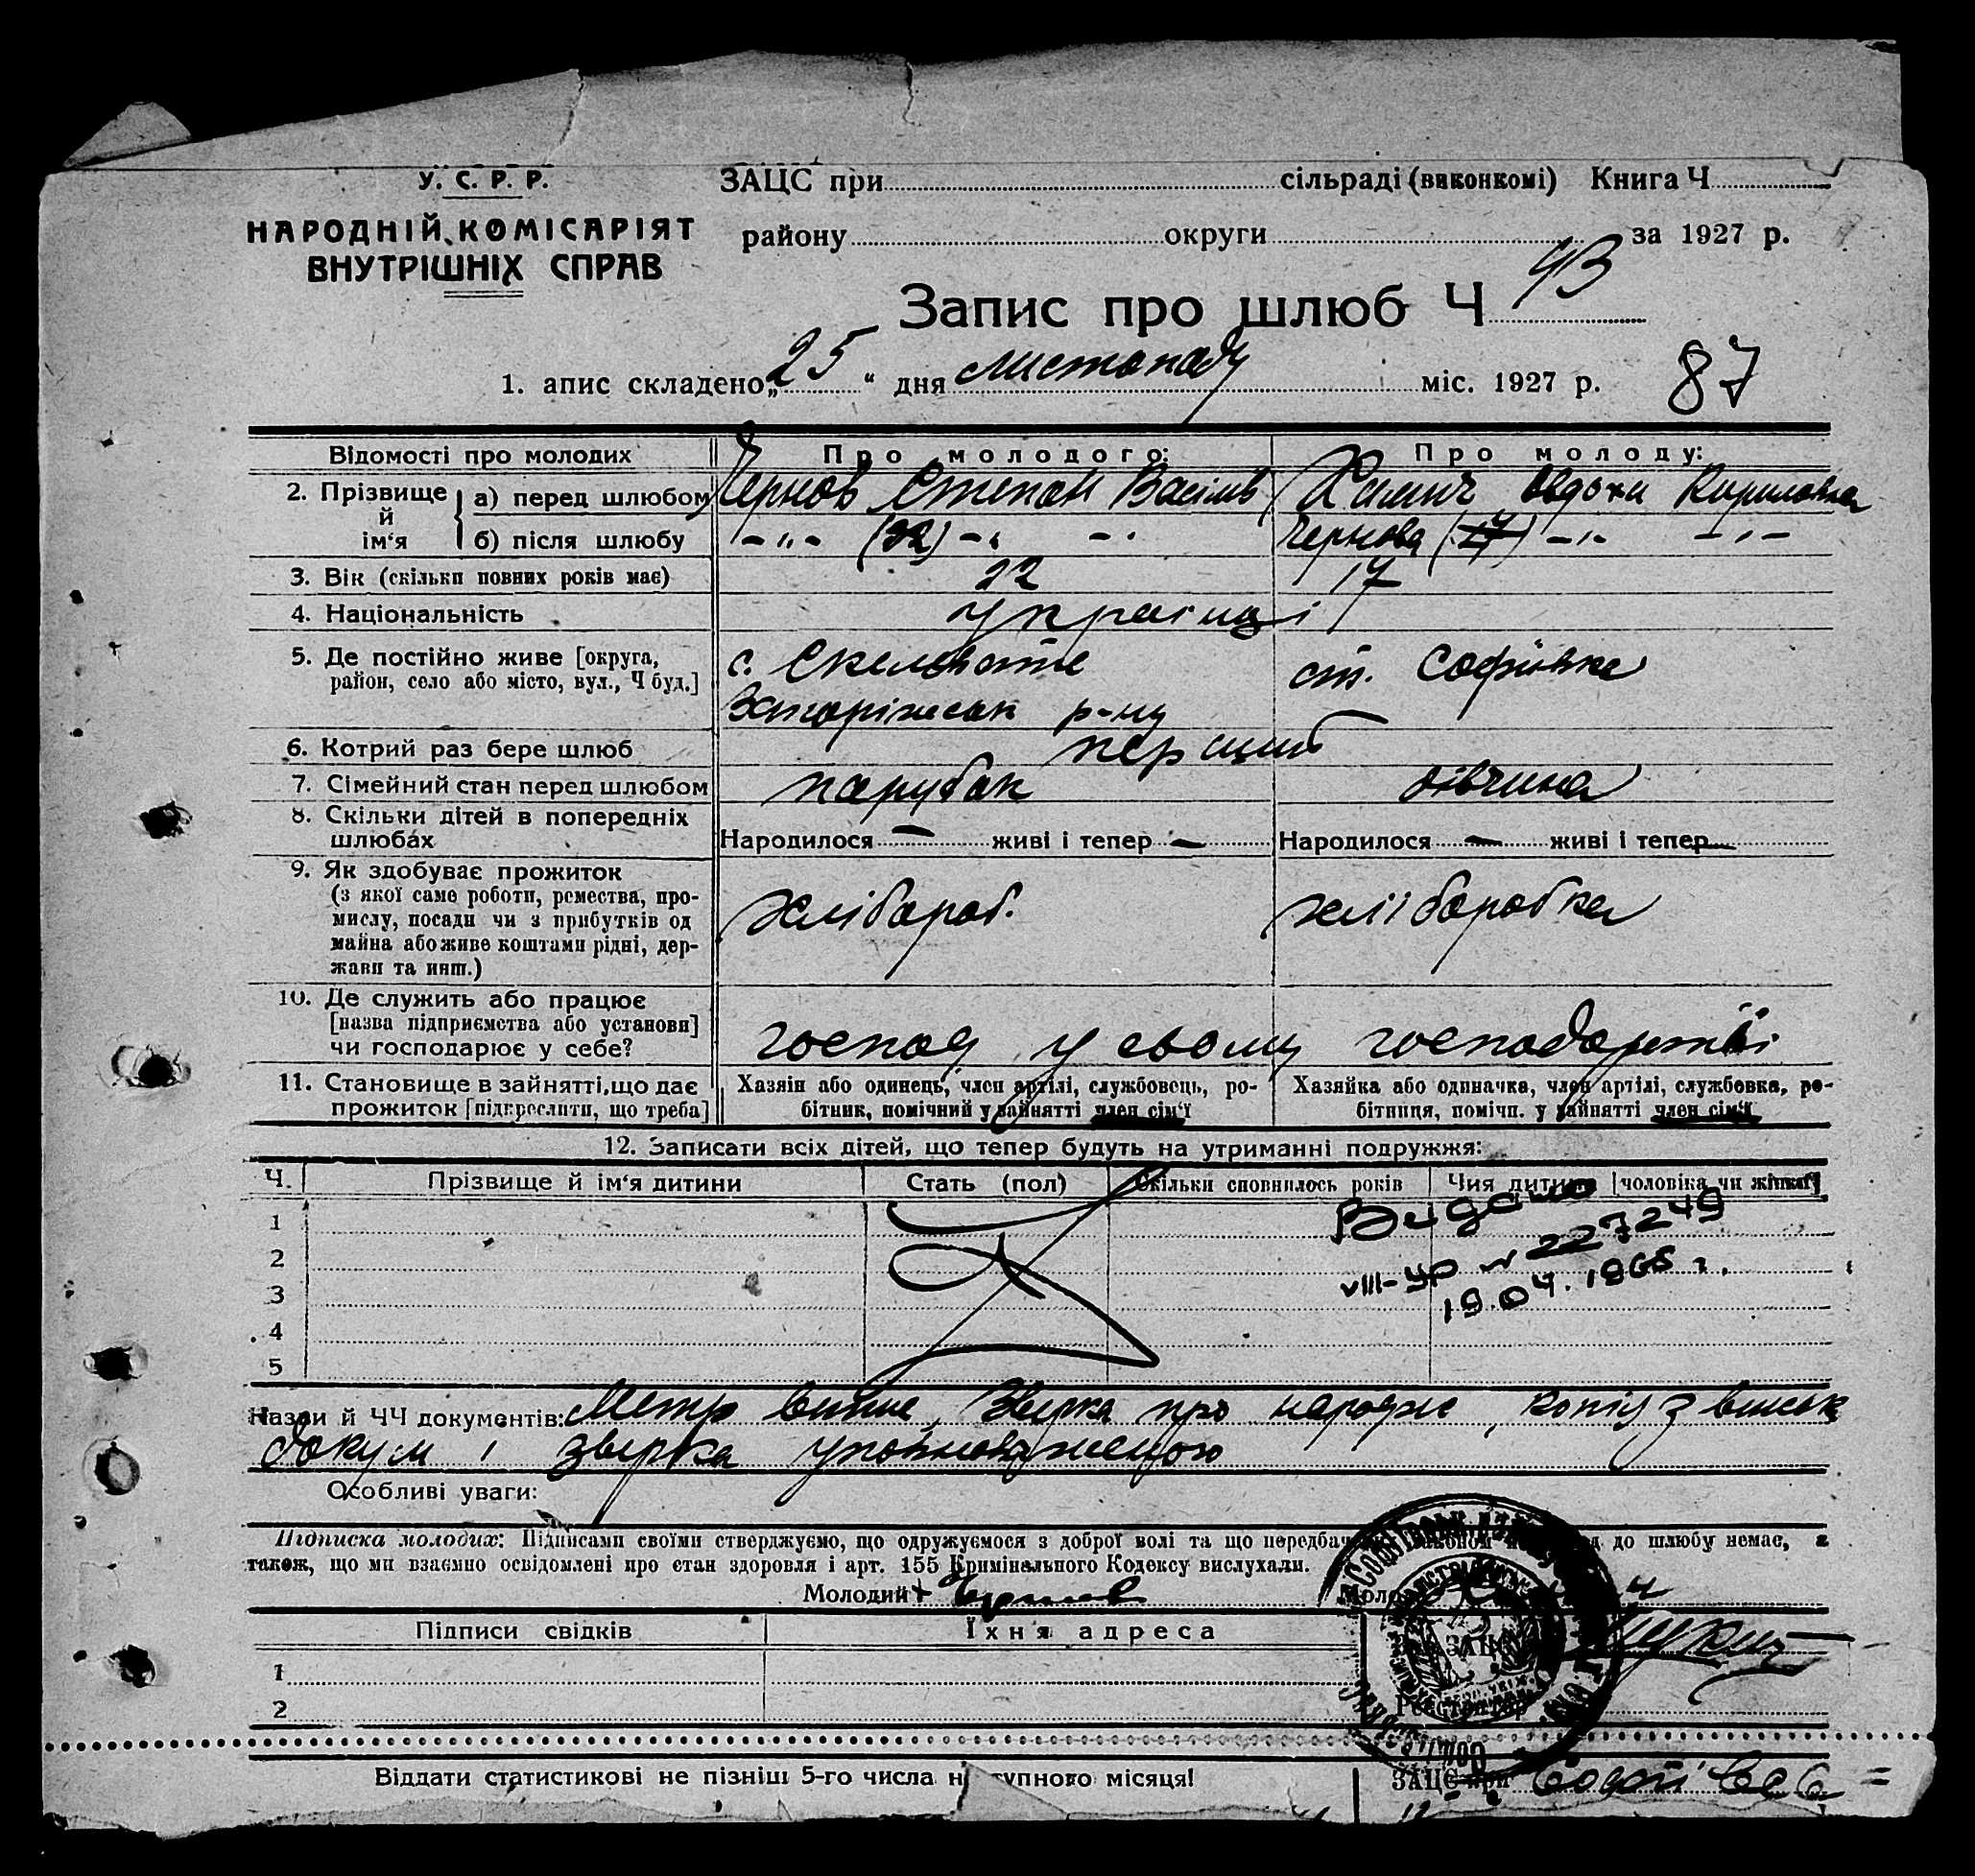 У. С. Р. Р.
НАРОДНІЙ КОМІСАРІЯТ
ВНУТРІШНІХ СПРАВ
ЗАЦС при сільраді (виконкомі) Книга Ч
району округи за 1927 р.
Запис про шлюб Ч 93
1. апис складено „25“ дня листопаду міс. 1927 р. 87
Відомості про молодих Про молодого: Про молоду:
2. Прізвище й ім‘я а) перед шлюбом Чернов Степан Васілів Овдоки Кириловна
б) після шлюбу -„- (22) -„ -„ Чернова (17) -„- -„-
3. Вік (скільки повних років має) 22 17
4. Національність українці
5. Де постійно живе [округа, район, село або місто, вул., Ч буд.] с. Скелювате р-ну ст. Софіївка
6. Котрий раз бере шлюб перший
7. Сімейний стан перед шлюбом парубак дівчина
8. Скільки дітей в попередніх шлюбах Народилося — живі і тепер — Народилося — живі і тепер —
9. Як здобуває прожиток
(з якої саме роботи, ремества, про-
мислу, посади чи з прибутків од
майна або живе коштами рідні, дер-
жави та инш.) хлібороб. хліборобка
10. Де служить або працює
[назва підприємства або установи]
чи господарює у себе? господ у свому господарстві
11. Становище в зайнятті, що дає
прожиток [підкреслити, що треба]
Хазяін або одинець, член артілі, службовець, ро-
бітник, помічний у зайнятті член сім‘ї
Хазяйка або одиначка, член артілі, службовка, ро-
бітниця, помічн. у зайнятті член сім‘ї
12. Записати всіх дітей, що тепер будуть на утриманні подружжя:
Ч. Прізвище й ім‘я дитини Стать (пол) Скільки сповнилось років Чия дитина [чоловіка чи жінки]
1
2
3
4
5
Видано
VIII-УР № 227249
19.04.1965 г.
Назви й ЧЧ документів: Метр випис, Звірка про народж, копія з військ
докум і звірка уповноваженою
Особливі уваги:
Підписка молодих: Підписами своїми стверджуємо, що одружуємося з доброї волі та що передбач до шлюбу немає, а
також, що ми взаємно освідомлені про стан здоровля і арт. 155 Кримінального Кодексу вислухали.
Молодий Чернов
Підписи свідків Їхня адреса
1
2
ЗАЦС
Реєстратор
Віддати статистикові не пізніш 5-го числа наступного місяця!
ЗАЦС при